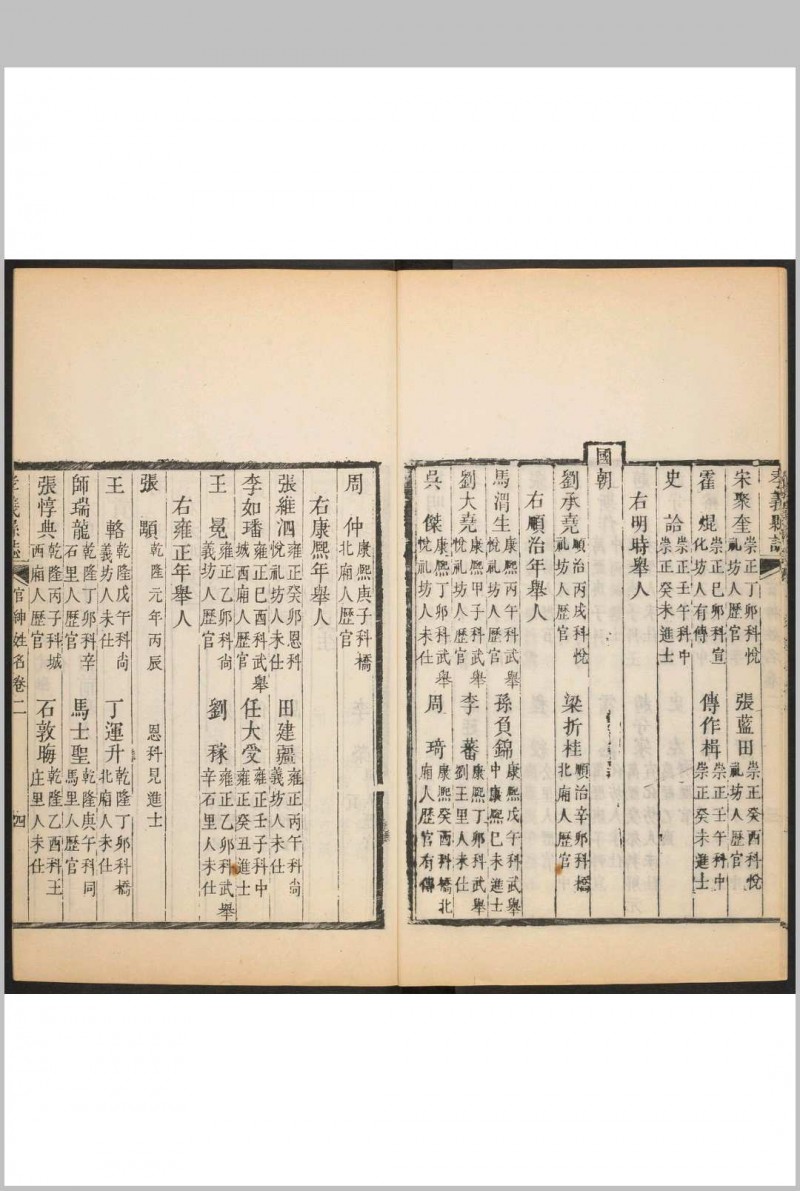 孝義縣誌
宋聚奎 崇正丁卯科悅礼坊人歴官 張藍田 崇正癸酉科悅礼坊人歴官
霍焜 崇正巳卯科宣化坊人有傳 傳作楫 崇正壬午科中崇正癸未進士
史詥 崇正壬午科中崇正癸未進士
右明時舉人
國朝
劉承堯 順治丙戌科悅礼坊人歴官 梁折桂 順治辛卯科橋北廂人歴官
右順治年舉人
馬渭生 康熙丙午科武舉悅礼坊人歴官 孫負錦 康熙戊午科武舉中康熙巳未進士
劉大堯 康熙甲子科武舉悅礼坊人歴官 李蕃 康熙丁卯科武舉劉王里人未仕
吳傑 康熙丁卯科武舉悅礼坊人未仕 周琦 康熙癸酉科橋北廂人歴官有傳
周仲 康熙庚子科橋北廂人歴官
右康熙年舉人
張維泗 雍正癸卯恩科悅礼坊人未仕 田建疆 雍正丙午科尚義坊人未仕
李如璠 雍正巳酉科武舉城西廂人歴官 任大受 雍正壬子科中雍正癸丑進士
王冕 雍正乙卯科尚義坊人歴官 劉稼 雍正乙卯科武舉辛石里人未仕
右雍正年舉人
張顒 乾隆元年丙辰 恩科見進士
王輅 乾隆戊午科尚義坊人未仕 丁運升 乾隆丁卯科橋北廂人未仕
師瑞龍 乾隆丁卯科辛石里人歴官 馬士聖 乾隆庚午科同馬里人歴官
張惇典 乾隆丙子科城西廂人歴官 石敦晦 乾隆乙酉科王庄里人未仕
孝義縣誌 官紳姓名卷二 四